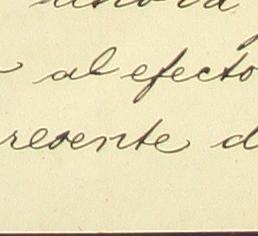 al efecto
resente d